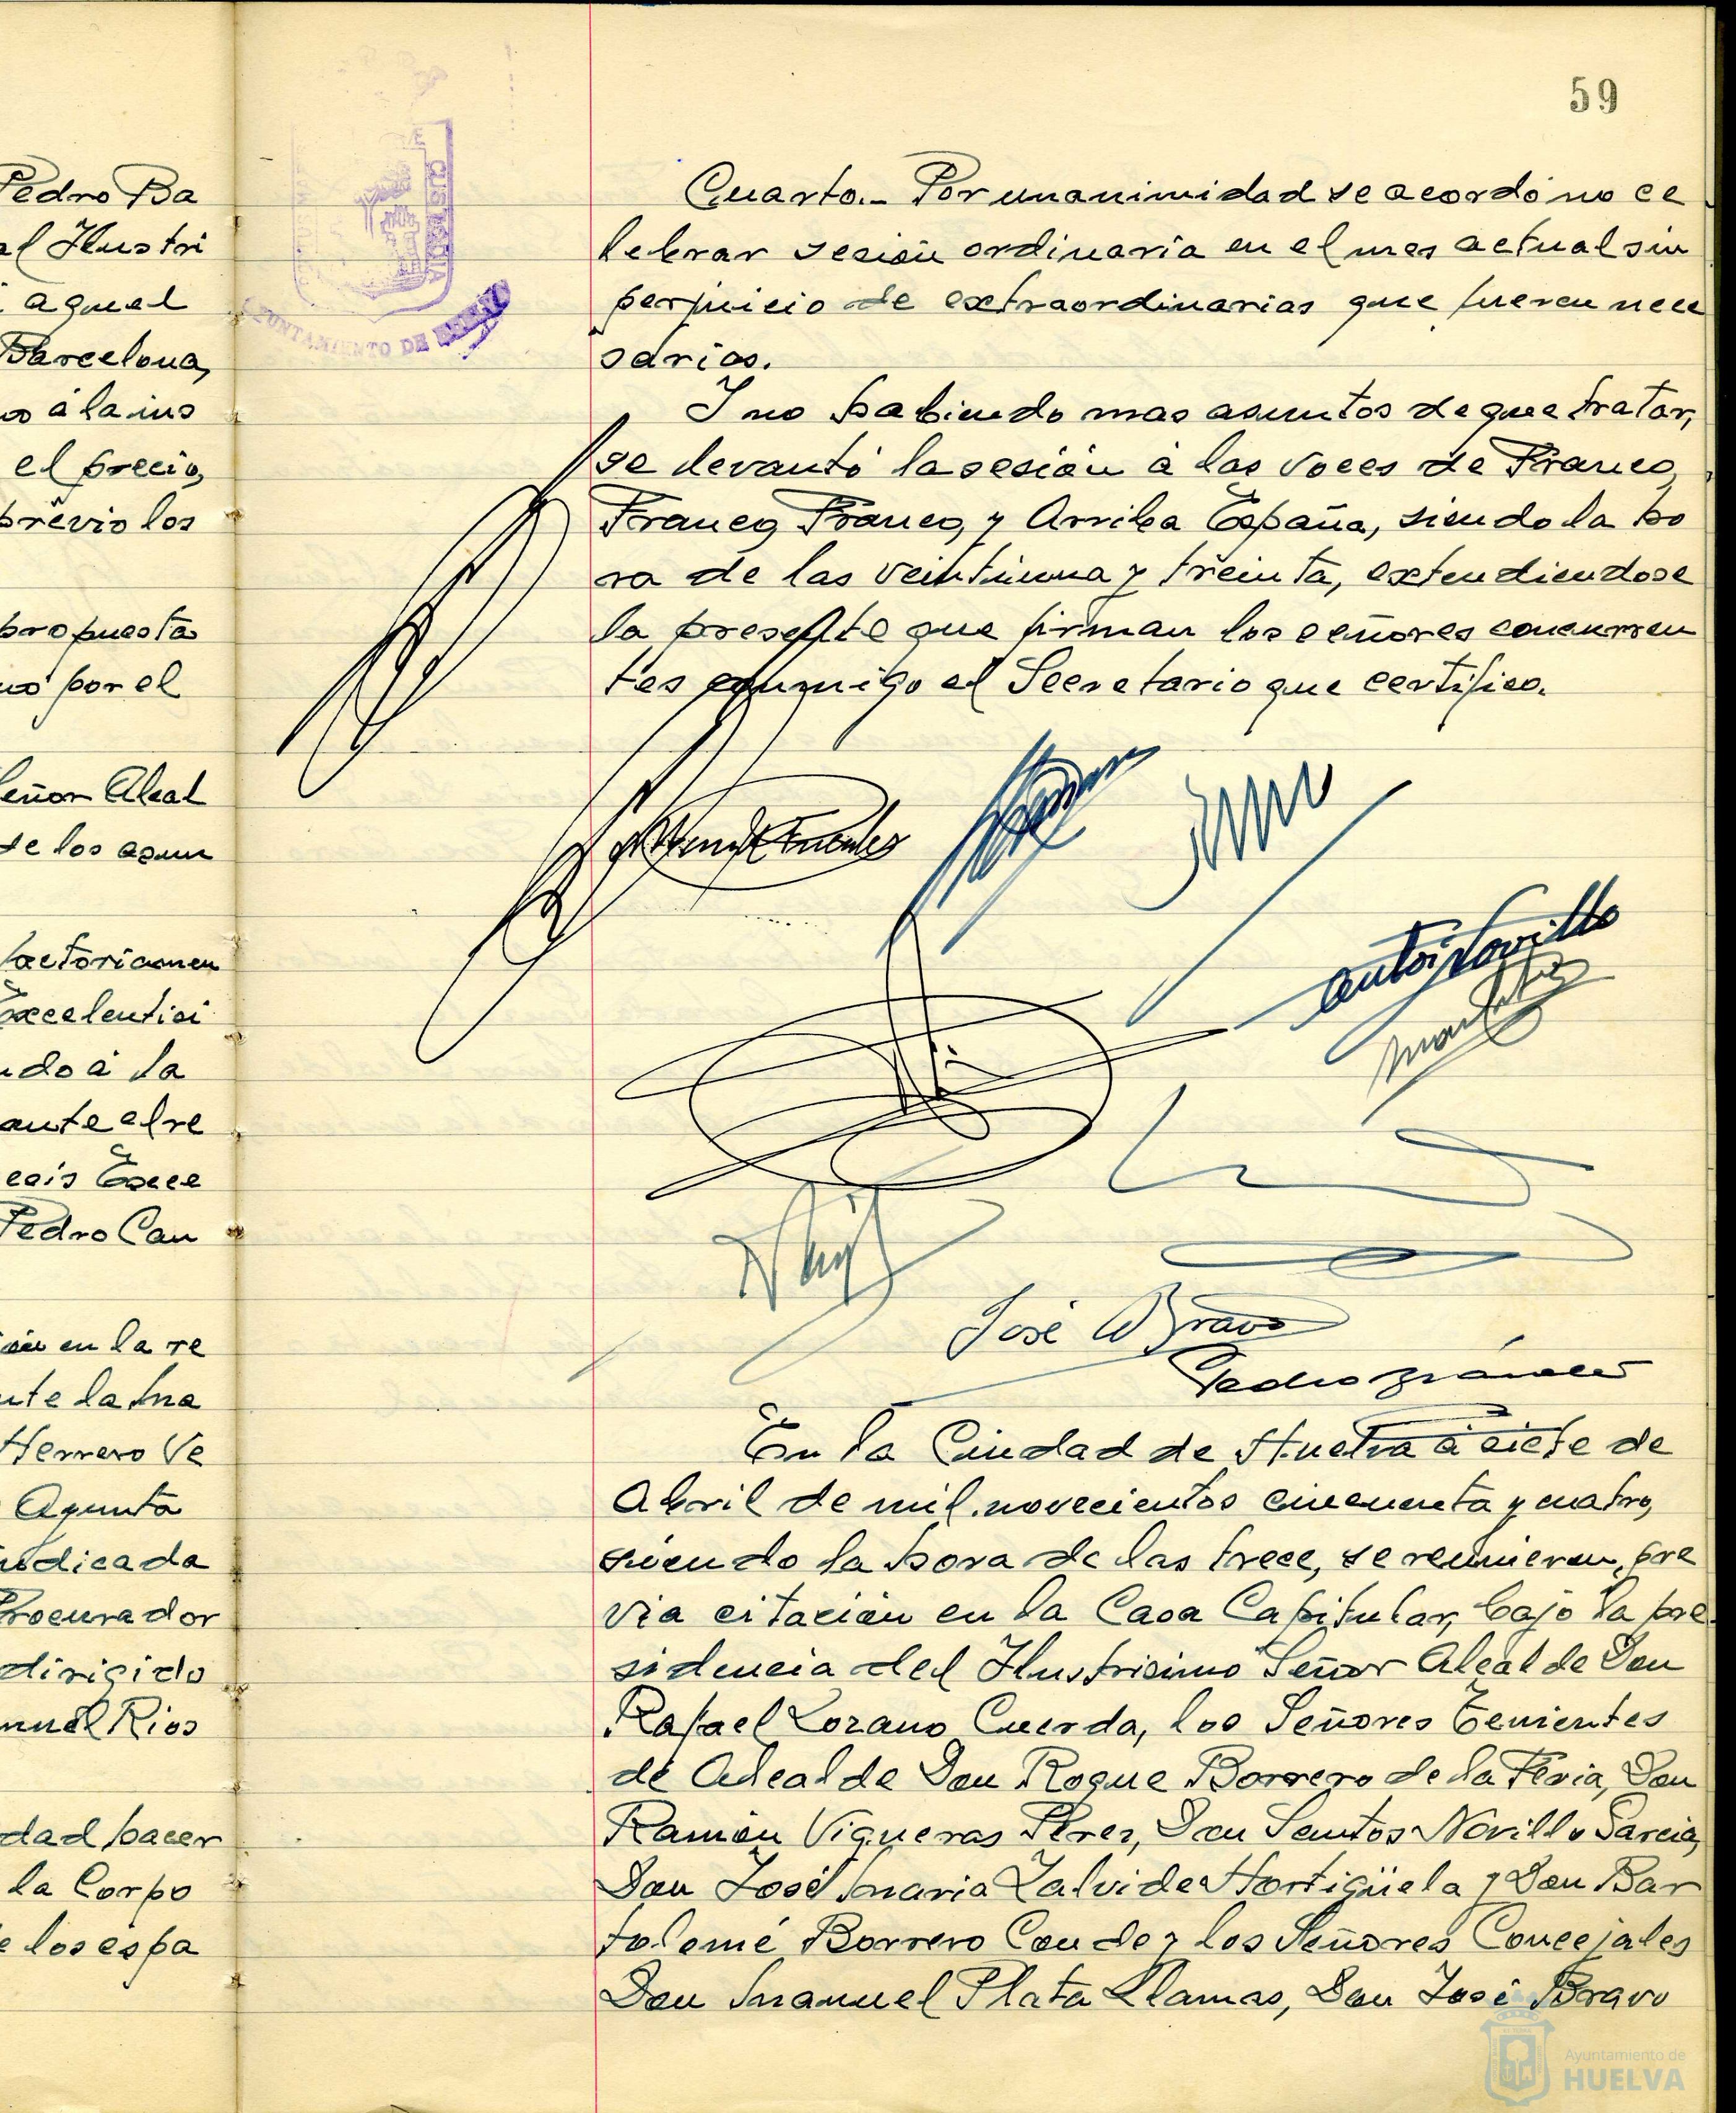 Pedro Ba
al Ilustri
aquel
Barcelona,
á la ins
el precio,
previo los
propuesta
por el
Señor Alcal
de los asun
factoriamen
Excelentísi
ndo á la
ante el re
Exce
Pedro Can
en la re
nte la Ma
Herrero Ve
Ayunta
indicada
Procurador
dirigido
nuel Rios
dad hacer
la Corpo
e los espa
59
AYUNTAMIENTO DE
Cuarto.- Por unanimidad se acordó no ce
lebrar sesión ordinaria en el mes actual sin
perjuicio de extraordinarias que fueren nece
sarias.
Y no habiendo mas asuntos de que tratar,
se levantó la sesión á las voces de Franco,
Franco, Franco, y Arriba España, siendo la ho
ra de las veintiuna y treinta, extendiendose
la presente que firman los señores concurren
tes conmigo el Secretario que certifico.
José Bravo
En la Ciudad de Huelva á siete de
Abril de mil novecientos cincuenta y cuatro,
siendo la hora de las trece, se reunieron, pre
via citación en la Casa Capitular, bajo la pre
sidencia del Ilustrisimo Señor Alcalde Don
Rafael Lozano Cuerda, los Señores Tenientes
de Alcalde Don Roque Borrero de la Feria, Don
Ramón Vigueras Pérez, Don Santos Novillo García,
Don José María Zalvide Hortigüela y Don Bar
tolomé Borrero Conde y los Señores Concejales
Don Manuel Plata Llamas, Don José Bravo
Ayuntamiento de
HUELVA